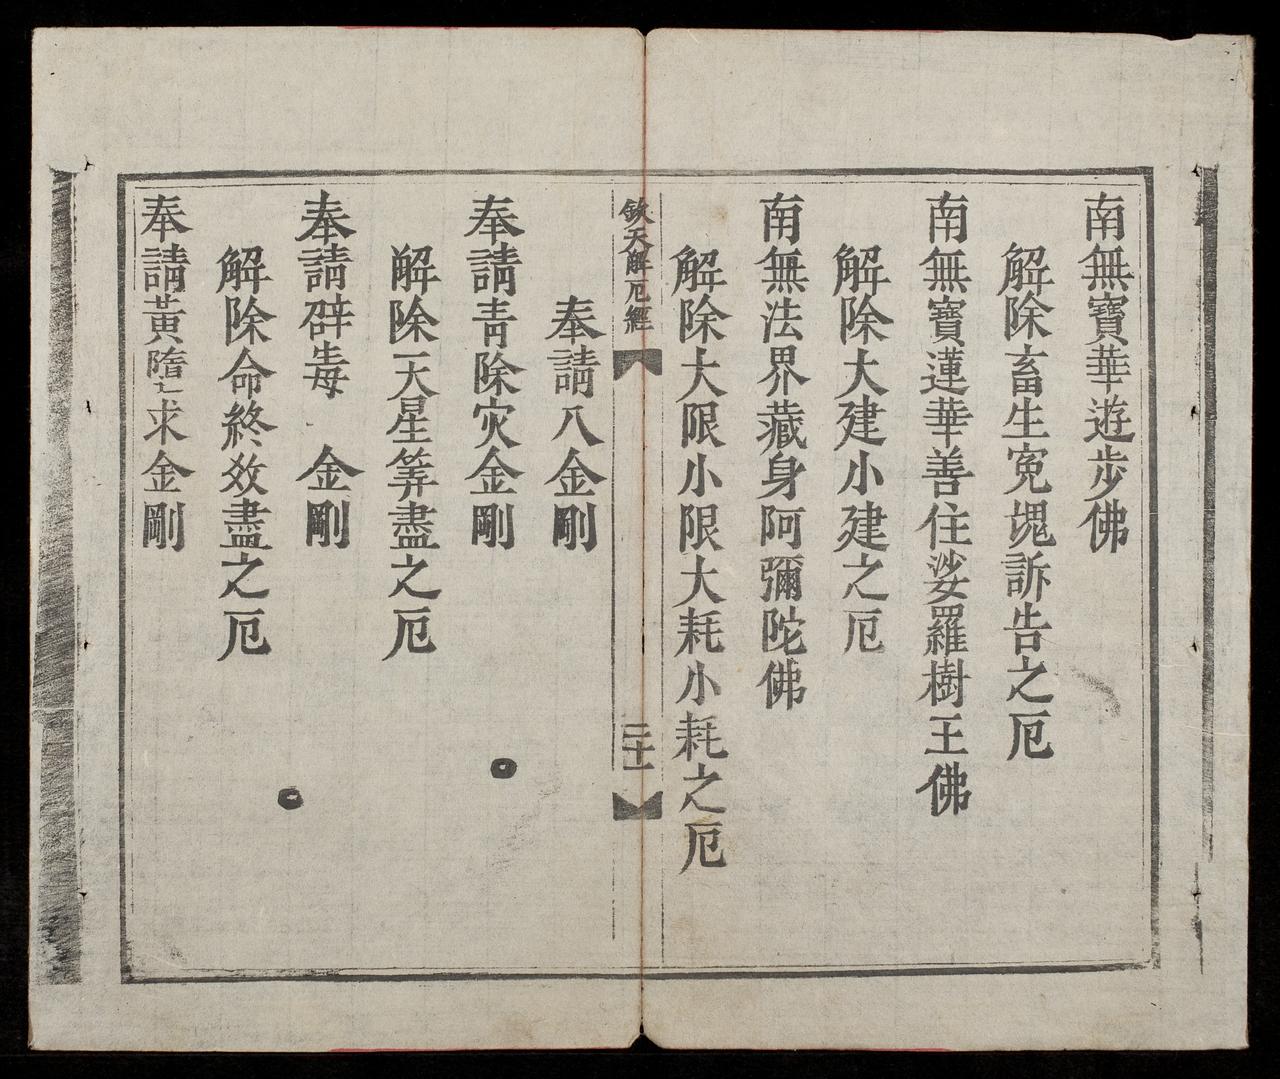 南無寶華遊步佛
解除畜生寃愧訴告之厄
南無寶蓮華善住娑羅樹王佛
解除大建小建之厄
南無法界藏身阿彌陀佛
解除大限小限大耗小耗之厄
欽天解厄經
二十一
奉請八金剛
奉請青除灾金剛
解除天星筭盡之厄
奉請辟毒 金剛
解除命終效盡之厄
奉請黃隋求金剛